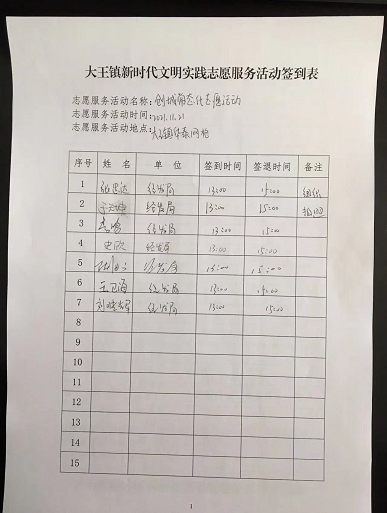 大王镇新时代文明实践志愿服务活动签到表
志愿服务活动名称: 创城常态化志愿活动
志愿服务活动时间: 2021.11.21
志愿服务活动地点: 大王镇
序号 姓名 单位 签到时间 签退时间 备注
1 经发局 13:00 15:00 组织
2 经发局 13:00 15:00 拍照
3 经发局 13:00 15:00
4 史欣 经发局 13:00 15:00
5 经发局 13:00 15:00
6 王卫海 经发局 13:00 15:00
7 刘晓辉 经发局 13:00 15:00
8
9
10
11
12
13
14
15
1